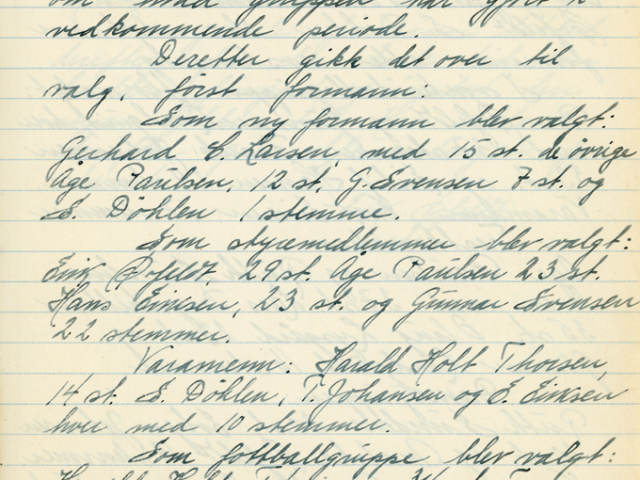 om hvad gruppen har gjort i
vedkommende periode.
Deretter gikk det over til
valg, først formann:
Som ny formann blev valgt:
Gerhard C. Larsen, med 15 st. de øvrige
Åge Paulsen, 12 st, G. Svensen 7 st. og
E. Döhlen 1 stemme.
Som styremedlemmer blev valgt:
Erik 29 st. Åge Paulsen 23 st.
Hans Eriksen, 23 st. og Gunnar Svensen
22 stemmer.
Varamenn: Harald Holt Thorsen,
14 st. E. Döhlen, T. Johansen og E. Eriksen
hver med 10 stemmer.
Som fotballgruppe blev valgt: